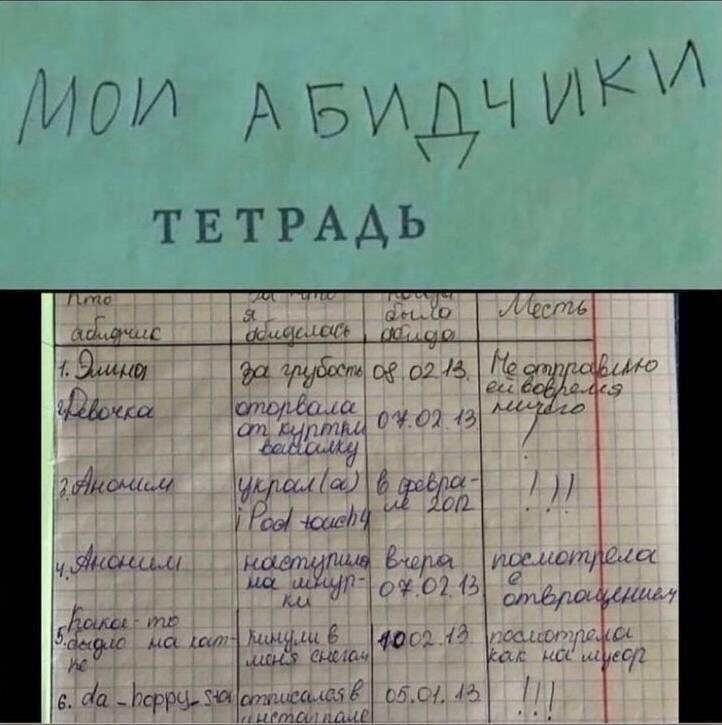 МОИ АБИДЧИКИ
ТЕТРАДЬ
Кто абидчик за что я абиделась когда было абида Месть
1. Элина за грубость 08.02.13. Не отправлю ей вовремя ничего
2. Девочка оторвала от куртки 07.02.13. !
3. Аноним украл(а) iPod touch 4 в феврале 2012 !!!
4. Аноним наступила на шнурки вчера 07.02.13 посмотрела с отвращением
5. Какое-то быдло на катке кинули в меня снегом 10 02.13. посмотрела как на мусор
6. da_happy_star отписался в инстаграме 05.01.13. !!!